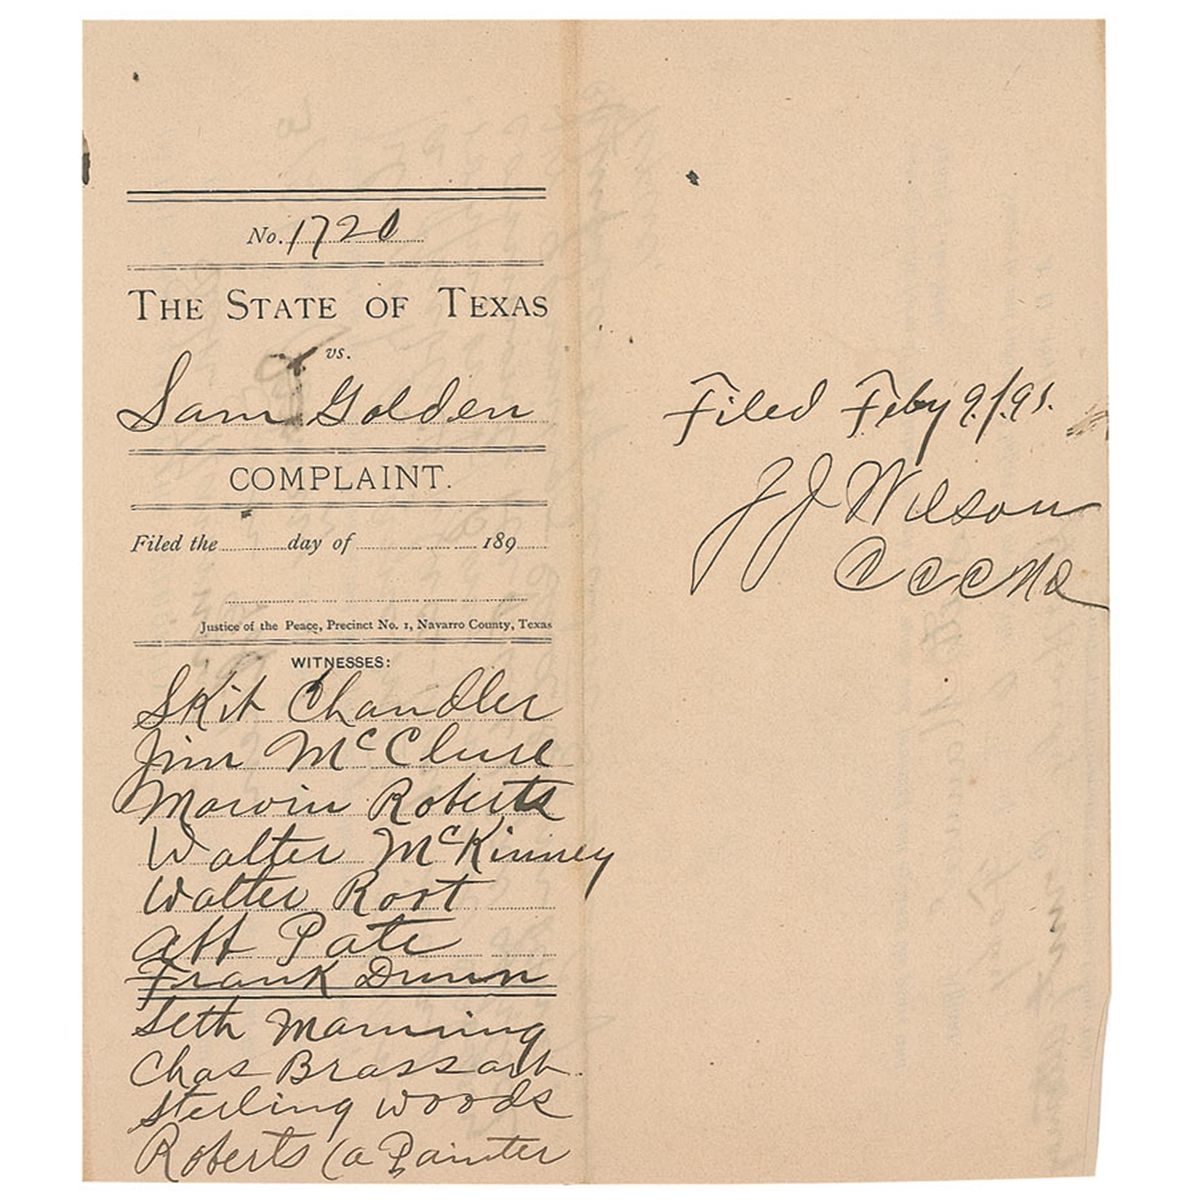 No. 1720
THE STATE OF TEXAS
vs.
Sam Golden
COMPLAINT.
Filed the day of 189
Justice of the Peace, Precinct No. 1, Navarro County, Texas
WITNESSES:
Skit Chandler
Jim McClure
Marvin Roberts
Walter McKinney
Walter Root
Aff Pate
Frank Dunn
Seth Manning
Chas Brassart
Sterling Woods
Roberts (a Painter
Filed Feby 9/95.
J J Wilson
CCCNC